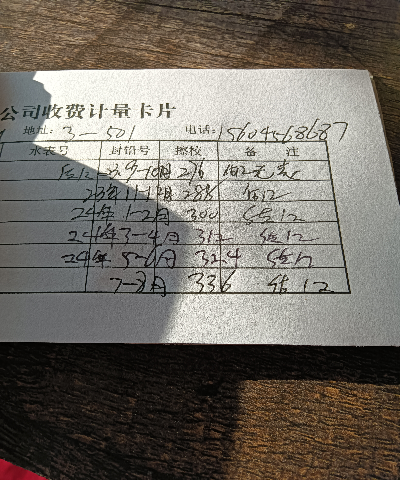 公司收费计量卡片
地址: 3-501 电话: 15604568687
水表号 封铅号 擦校 备 注
23.9-10月 276
23年11-12月 288 估12
24年1-2月 300 估12
24年3-4月 312 估12
24年5-6月 324 估12
7-8月 336 估12